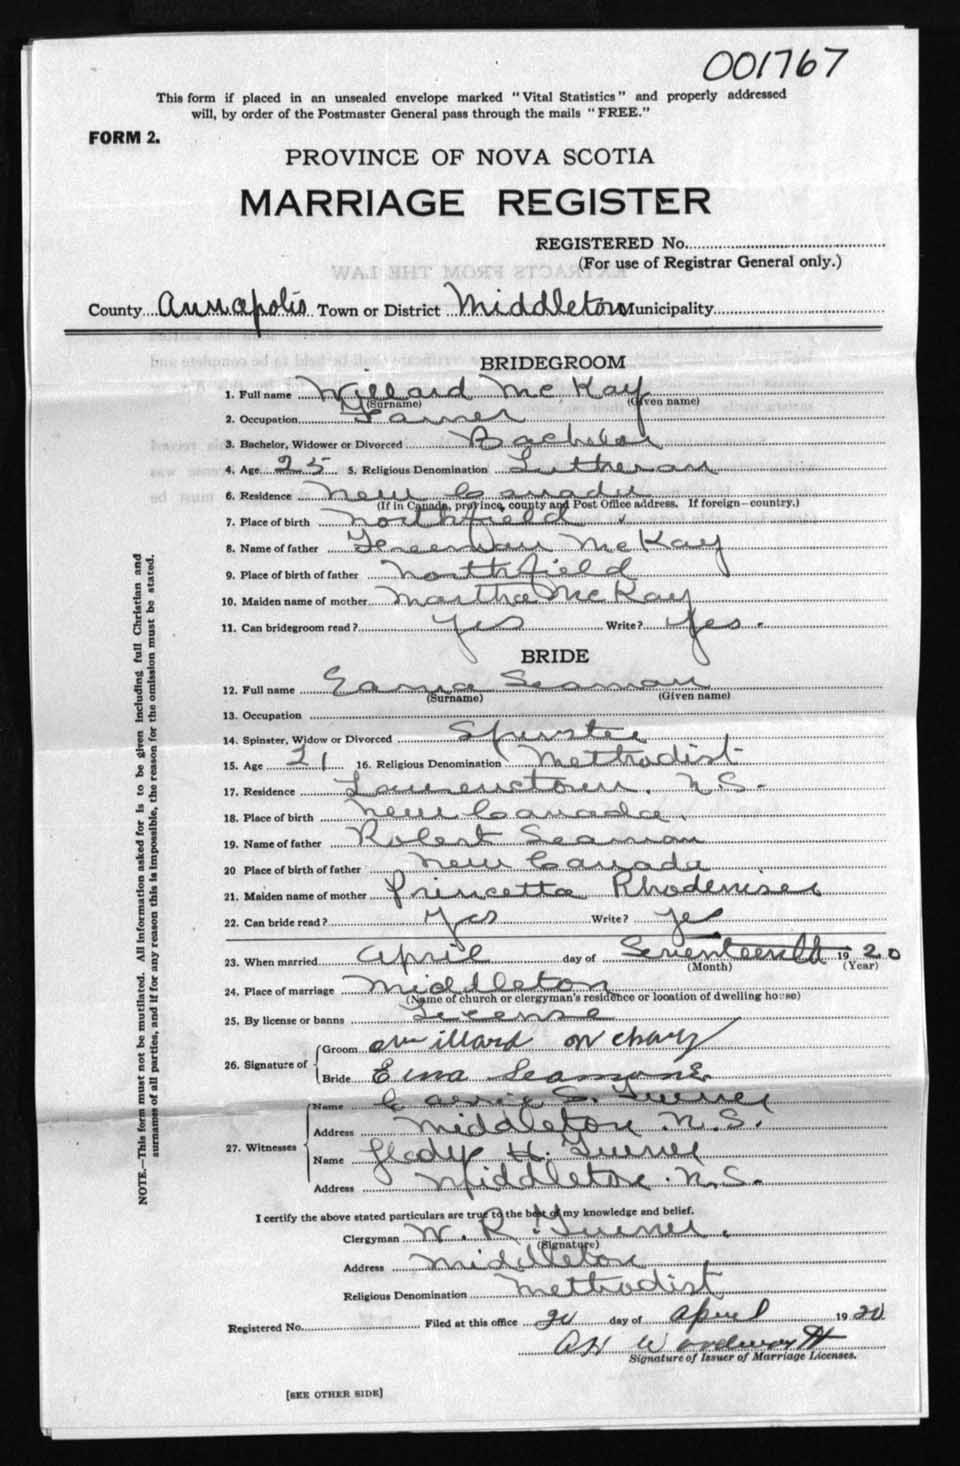 001767
This form if placed in an unsealed envelope marked "Vital Statistics" and properly addressed
will, by order of the Postmaster General pass through the mails "FREE."
FORM 2.
PROVINCE OF NOVA SCOTIA
MARRIAGE REGISTER
REGISTERED No.
(For use of Registrar General only.)
EXTRACTS FROM THE LAW
County Annapolis Town or District Middleton Municipality
BRIDEGROOM
1. Full name Willard McKay
(Surname) (Given name)
2. Occupation Farmer
3. Bachelor, Widower or Divorced Bachelor
4. Age 25 5. Religious Denomination Lutheran
6. Residence New Canada
(If in Canada, province, county and Post Office address. If foreign—country.)
7. Place of birth Northfield
8. Name of father Freeman McKay
9. Place of birth of father Northfield
10. Maiden name of mother Martha McKay
11. Can bridegroom read? Yes Write? Yes.
BRIDE
12. Full name Seaman
(Surname) (Given name)
13. Occupation
14. Spinster, Widow or Divorced Spinster
15. Age 21 16. Religious Denomination Methodist
17. Residence Lawrencetown. N.S.
18. Place of birth New Canada.
19. Name of father Robert Seaman
20 Place of birth of father New Canada
21. Maiden name of mother Princetta Rhodeniser
22. Can bride read? Yes Write? Yes
23. When married April day of Seventeenth 1920
(Month) (Year)
24. Place of marriage Middleton
(Name of church or clergyman's residence or location of dwelling house)
25. By license or banns License
26. Signature of
Groom willard
Bride Seamone
27. Witnesses
Name Carrie S. Turner
Address Middleton N.S.
Name Gladys H. Turner
Address Middleton. N.S.
I certify the above stated particulars are true to the best of my knowledge and belief.
Clergyman W. R. Turner.
(Signature)
Address Middleton
Religious Denomination Methodist
Registered No. Filed at this office 20 day of April 1920
A H Woodworth
Signature of Issuer of Marriage Licenses.
[SEE OTHER SIDE]
NOTE.—This form must not be mutilated. All information asked for is to be given including full Christian and
surnames of all parties, and if for any reason this is impossible, the reason for the omission must be stated.